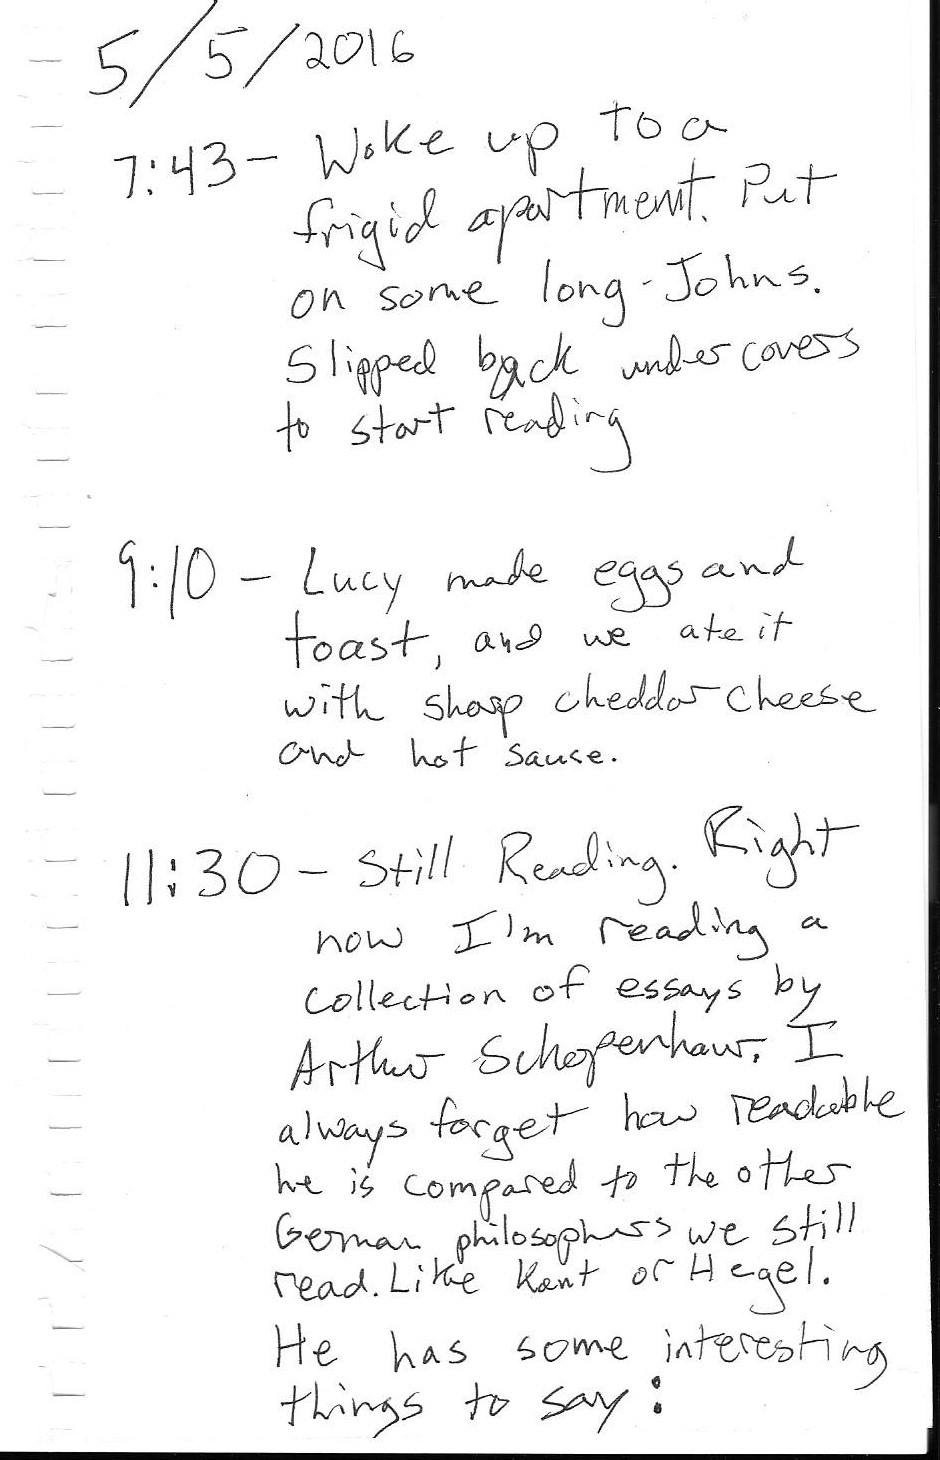 5/5/2016
7:43- Woke up to a
frigid apartment. Put
on some long-Johns.
Slipped back under covers
to start reading
9:10 - Lucy made eggs and
toast, and we ate it
with sharp cheddar cheese
and hot sause.
11:30 - Still Reading. Right
now I'm reading a
collection of essays by
Arthur Schopenhaur. I
always forget how readable
he is compared to the other
German philosophers we still
read. Like Kant or Hegel.
He has some interesting
things to say: